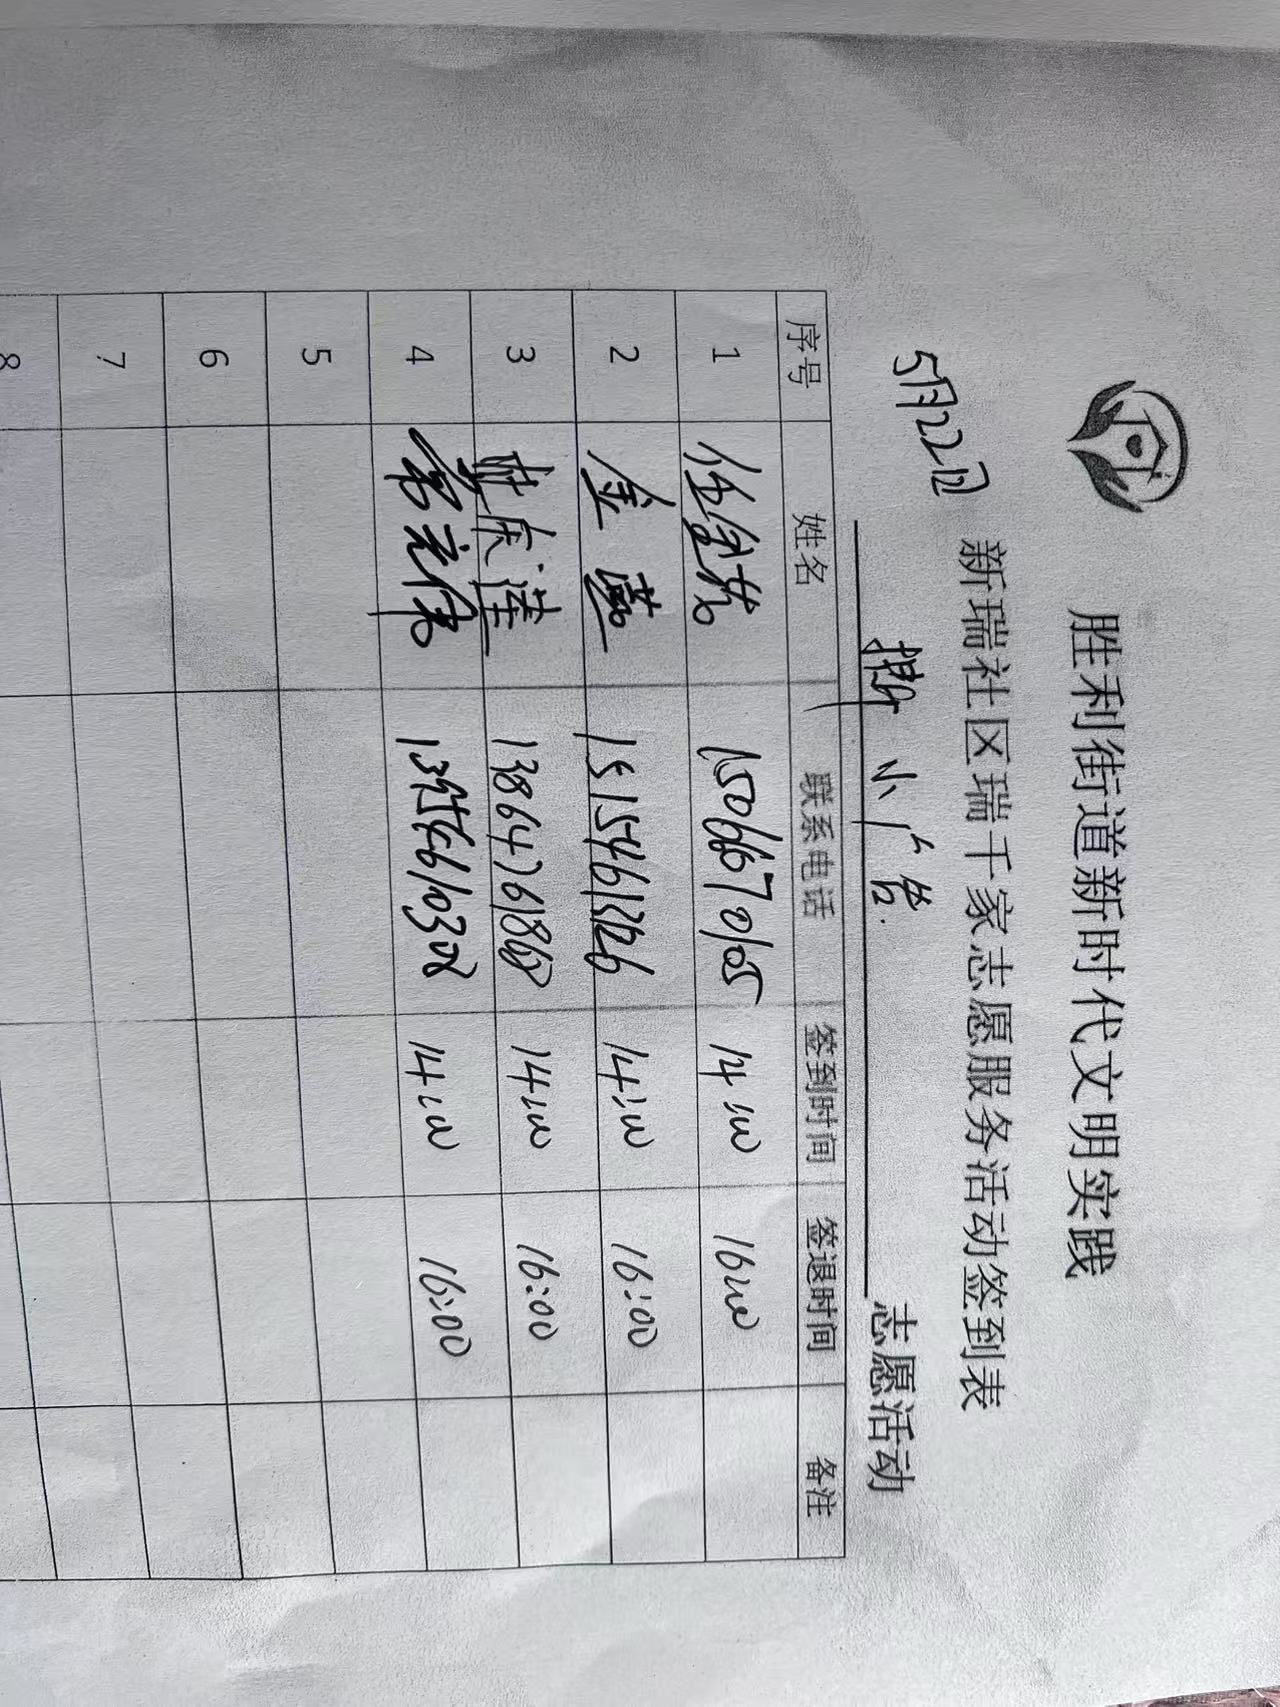 胜利街道新时代文明实践
新瑞社区瑞千家志愿服务活动签到表
5月22日 撕小广告. 志愿活动
序号 姓名 联系电话 签到时间 签退时间 备注
1 14:00 16:00
2 金燕 14:00 16:00
3 13864761868 14:00 16:00
4 14:00 16:00
5
6
7
8